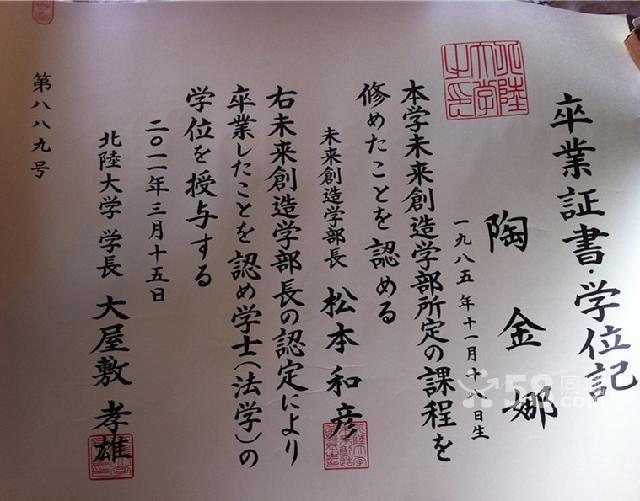 卒業証書・学位記
陶金娜
一九八五年十一月十八日生
本学未来創造学部所定の課程を
修めたことを認める
未来創造学部長 松本和彦
右未来創造学部長の認定により
卒業したことを認め学士(法学)の
学位を授与する
二〇一一年三月十五日
北陸大学 学長 大屋敷孝雄
第八八九号
北陸
大学
之印
58同城